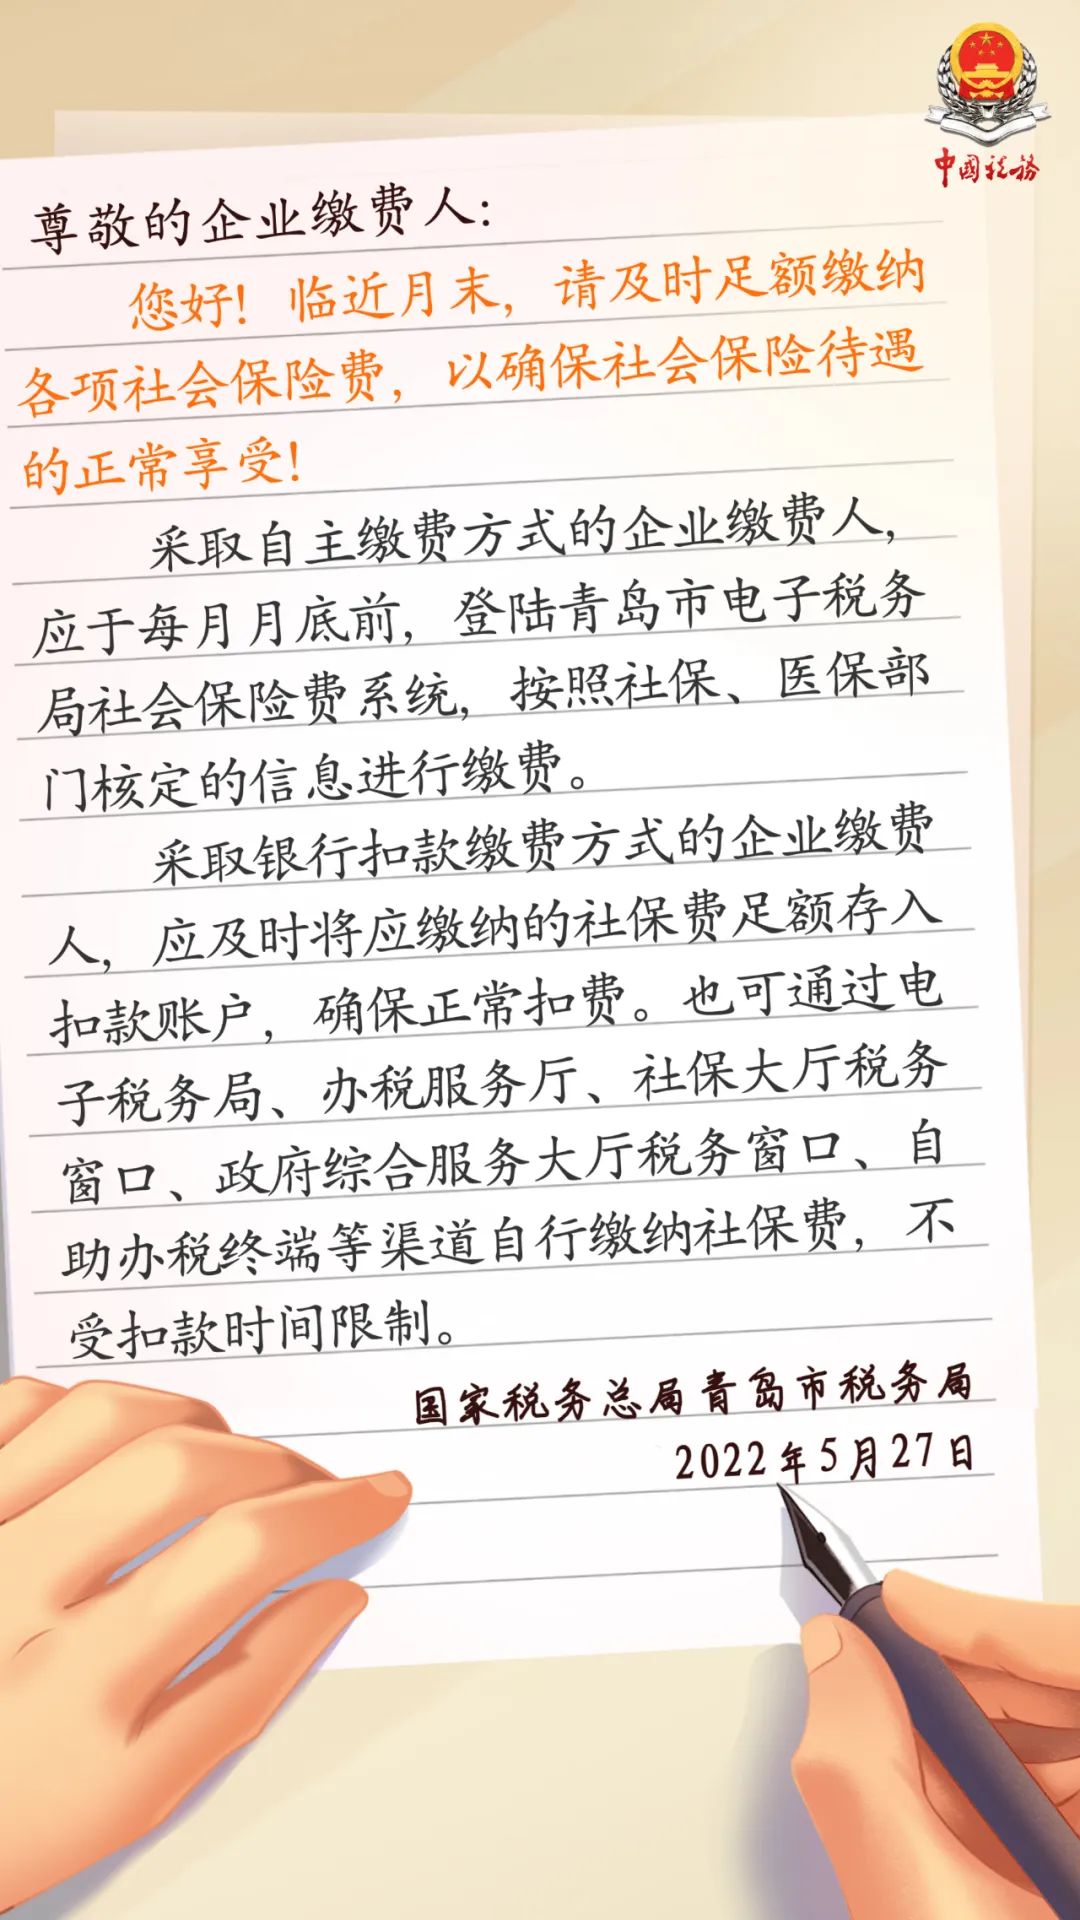 中国税务
尊敬的企业缴费人：
您好！临近月末，请及时足额缴纳
各项社会保险费，以确保社会保险待遇
的正常享受！
采取自主缴费方式的企业缴费人，
应于每月月底前，登陆青岛市电子税务
局社会保险费系统，按照社保、医保部
门核定的信息进行缴费。
采取银行扣款缴费方式的企业缴费
人，应及时将应缴纳的社保费足额存入
扣款账户，确保正常扣费。也可通过电
子税务局、办税服务厅、社保大厅税务
窗口、政府综合服务大厅税务窗口、自
助办税终端等渠道自行缴纳社保费，不
受扣款时间限制。
国家税务总局青岛市税务局
2022年5月27日